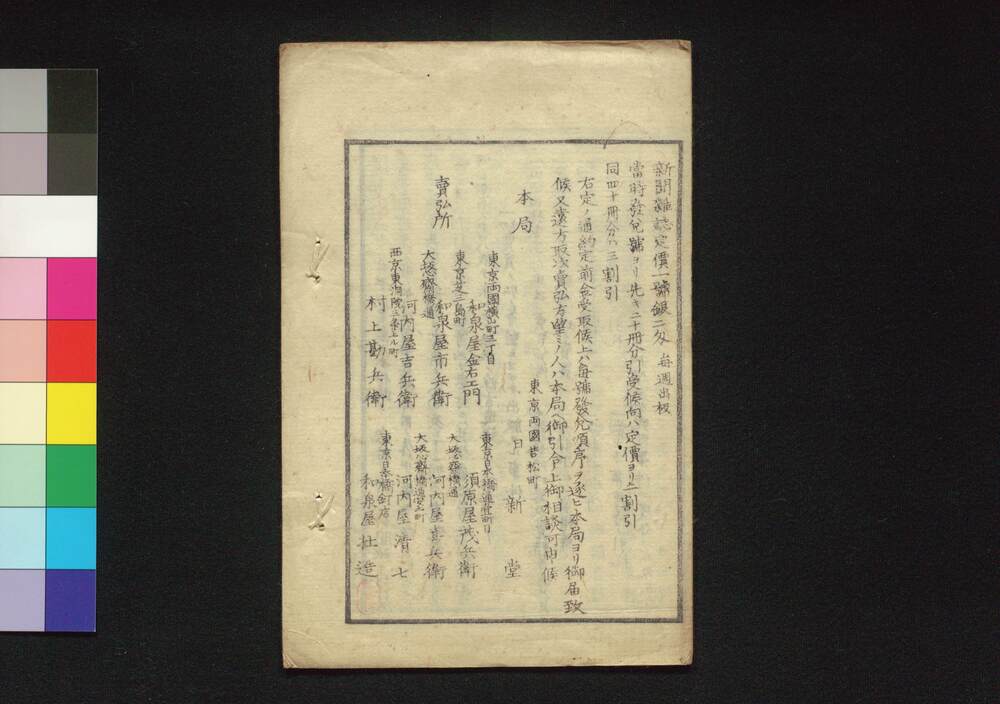 新聞雜誌定價一號銀二匁 每週出板
當時發兌號ヨリ先キ二十冊分引受候向ハ定價ヨリ二割引
同四十冊分ハ三割引
右定ノ通約定前金受取候上ハ每號發兌順序ヲ逐ヒ本局ヨリ御届致
候又遠方取次賣弘方望ミノ人ハ本局ヘ御引合上御相談可申候
東京両國若松町
本局 日新堂
賣弘所
東京両國橫山町三丁目
和泉屋金右エ門
東京芝三島町
和泉屋市兵衛
大坂心齋橋通
河内屋吉兵衛
西京東洞院三条上ル町
村上勘兵衛
東京日本橋通壹町目
須原屋茂兵衛
大坂心齋橋通
河内屋喜兵衛
大坂心齋橋通
河内屋清七
東京日本橋釘店
和泉屋壮造